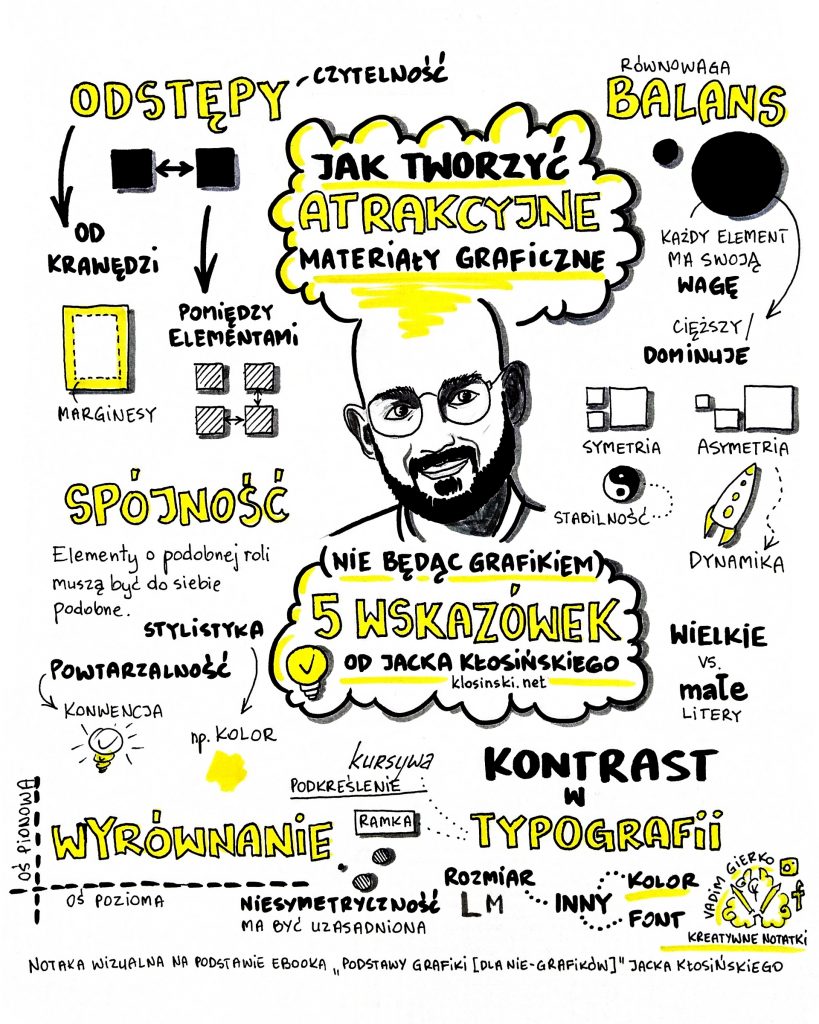 ODSTĘPY
CZYTELNOŚĆ
OD
KRAWĘDZI
MARGINESY
POMIĘDZY
ELEMENTAMI
JAK TWORZYĆ
ATRAKCYJNE
MATERIAŁY GRAFICZNE
RÓWNOWAGA
BALANS
KAŻDY ELEMENT
MA SWOJĄ
WAGĘ
CIĘŻSZY/
DOMINUJE
SYMETRIA
ASYMETRIA
STABILNOŚĆ
DYNAMIKA
SPÓJNOŚĆ
Elementy o podobnej roli
muszą być do siebie
podobne.
STYLISTYKA
POWTARZALNOŚĆ
KONWENCJA
np. KOLOR
(NIE BĘDĄC GRAFIKIEM)
5 WSKAZÓWEK
OD JACKA KŁOSIŃSKIEGO
klosinski.net
WIELKIE
VS.
małe
LITERY
KONTRAST
W
TYPOGRAFII
kursywa
PODKREŚLENIE
RAMKA
ROZMIAR
L M
INNY
KOLOR
FONT
OŚ PIONOWA
WYRÓWNANIE
OŚ POZIOMA
NIESYMETRYCZNOŚĆ
MA BYĆ UZASADNIONA
VADIM GIERKO
KREATYWNE NOTATKI
NOTAKA WIZUALNA NA PODSTAWIE EBOOKA „PODSTAWY GRAFIKI [DLA NIE-GRAFIKÓW]" JACKA KŁOSIŃSKIEGO